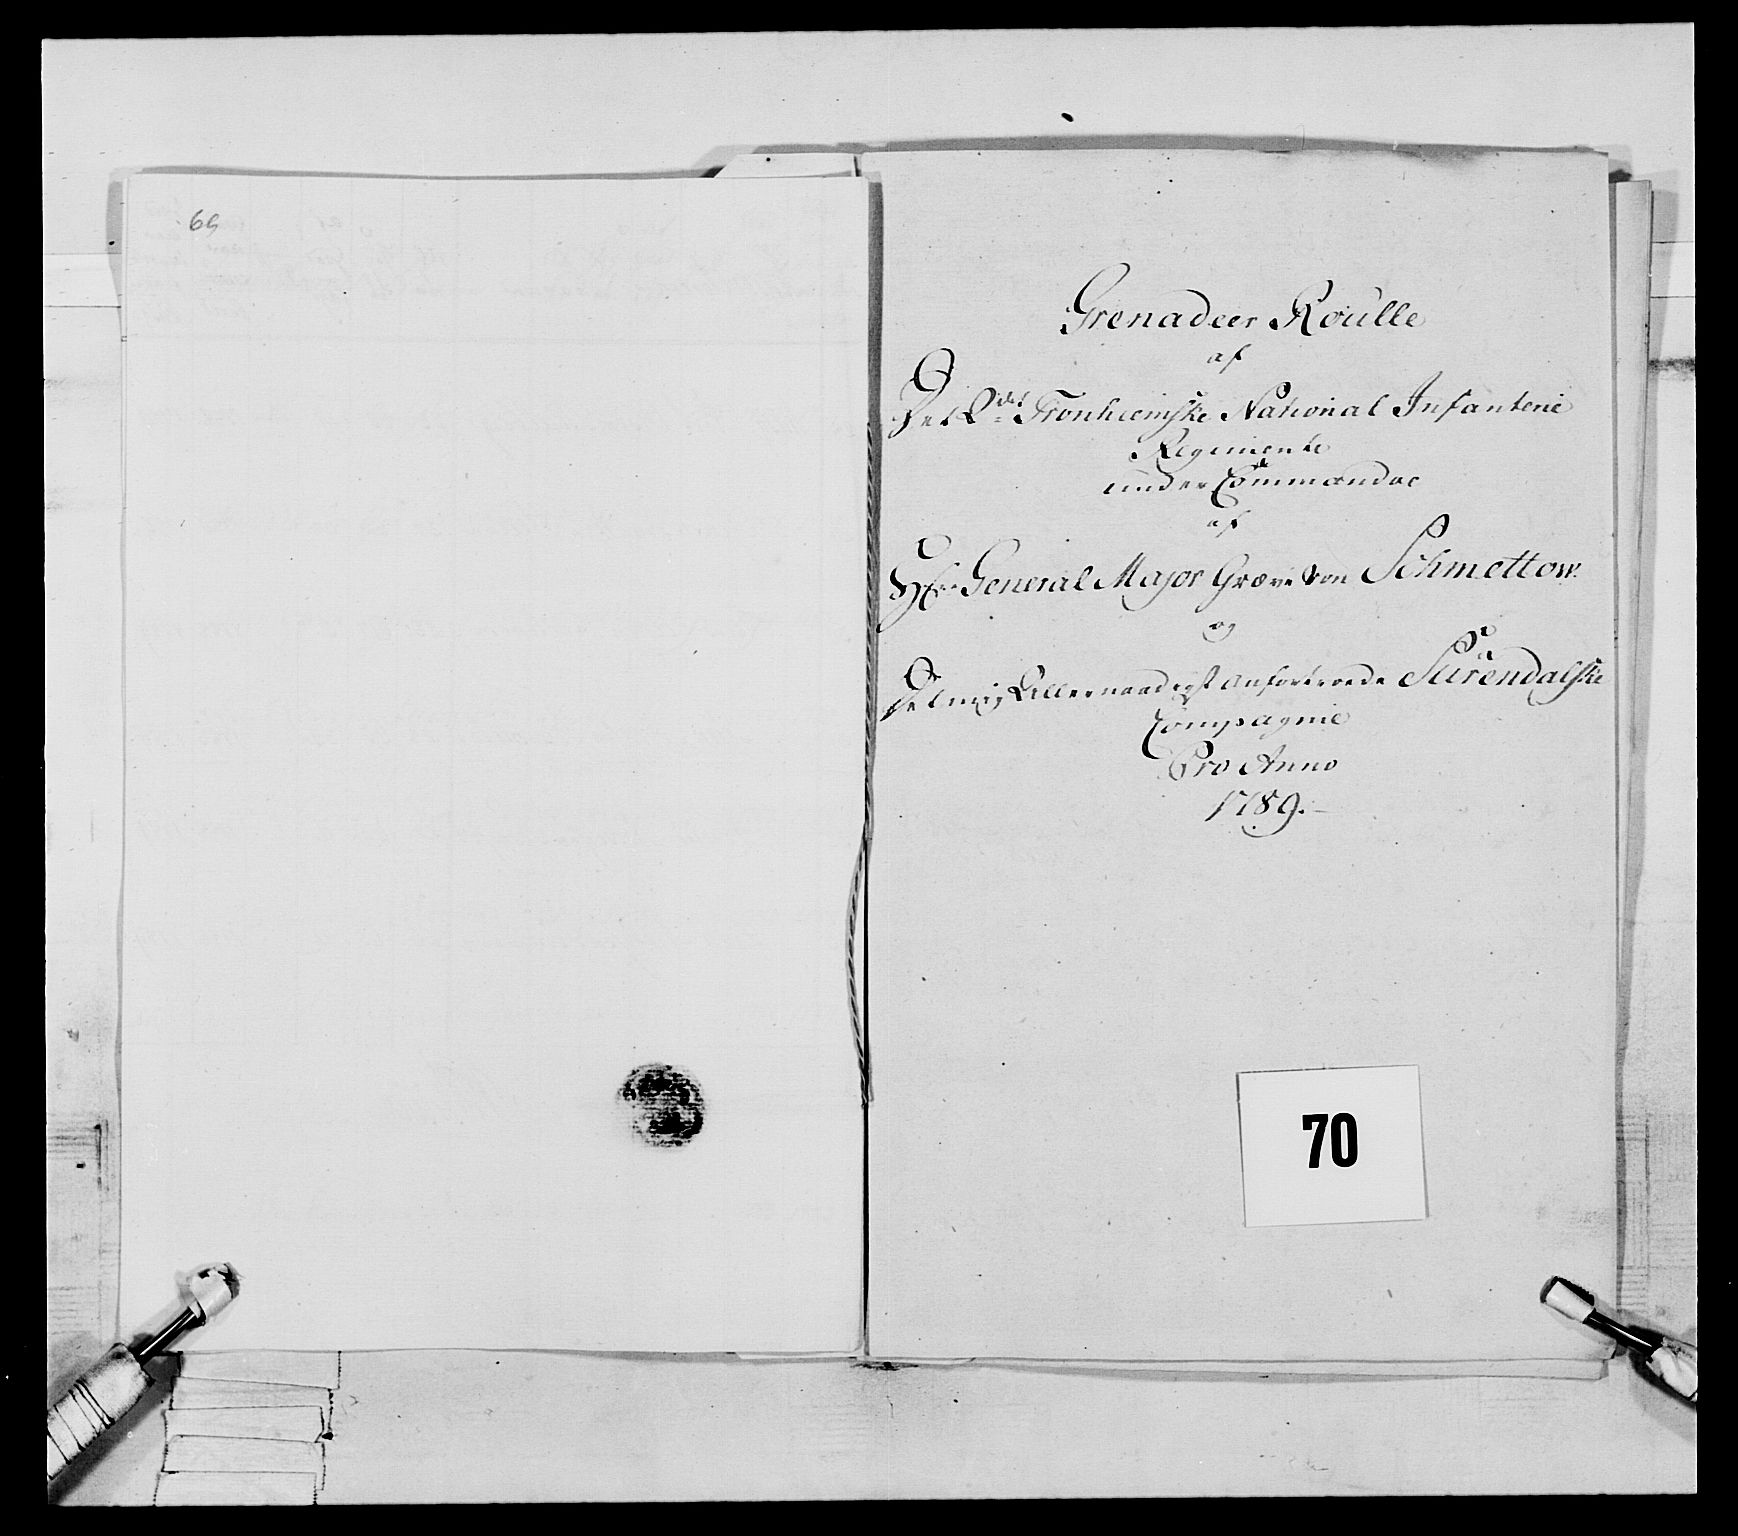 69
Grenadeer Roulle
af
Det 2det Tronhiemske National Infanterie
Regimente
under Commando
af
Hr. General Major Græve von Schmettow.
og
Det mig Allernaadigst anfortroede Surendalske
Compagnie
Pro Anno
1789.
70